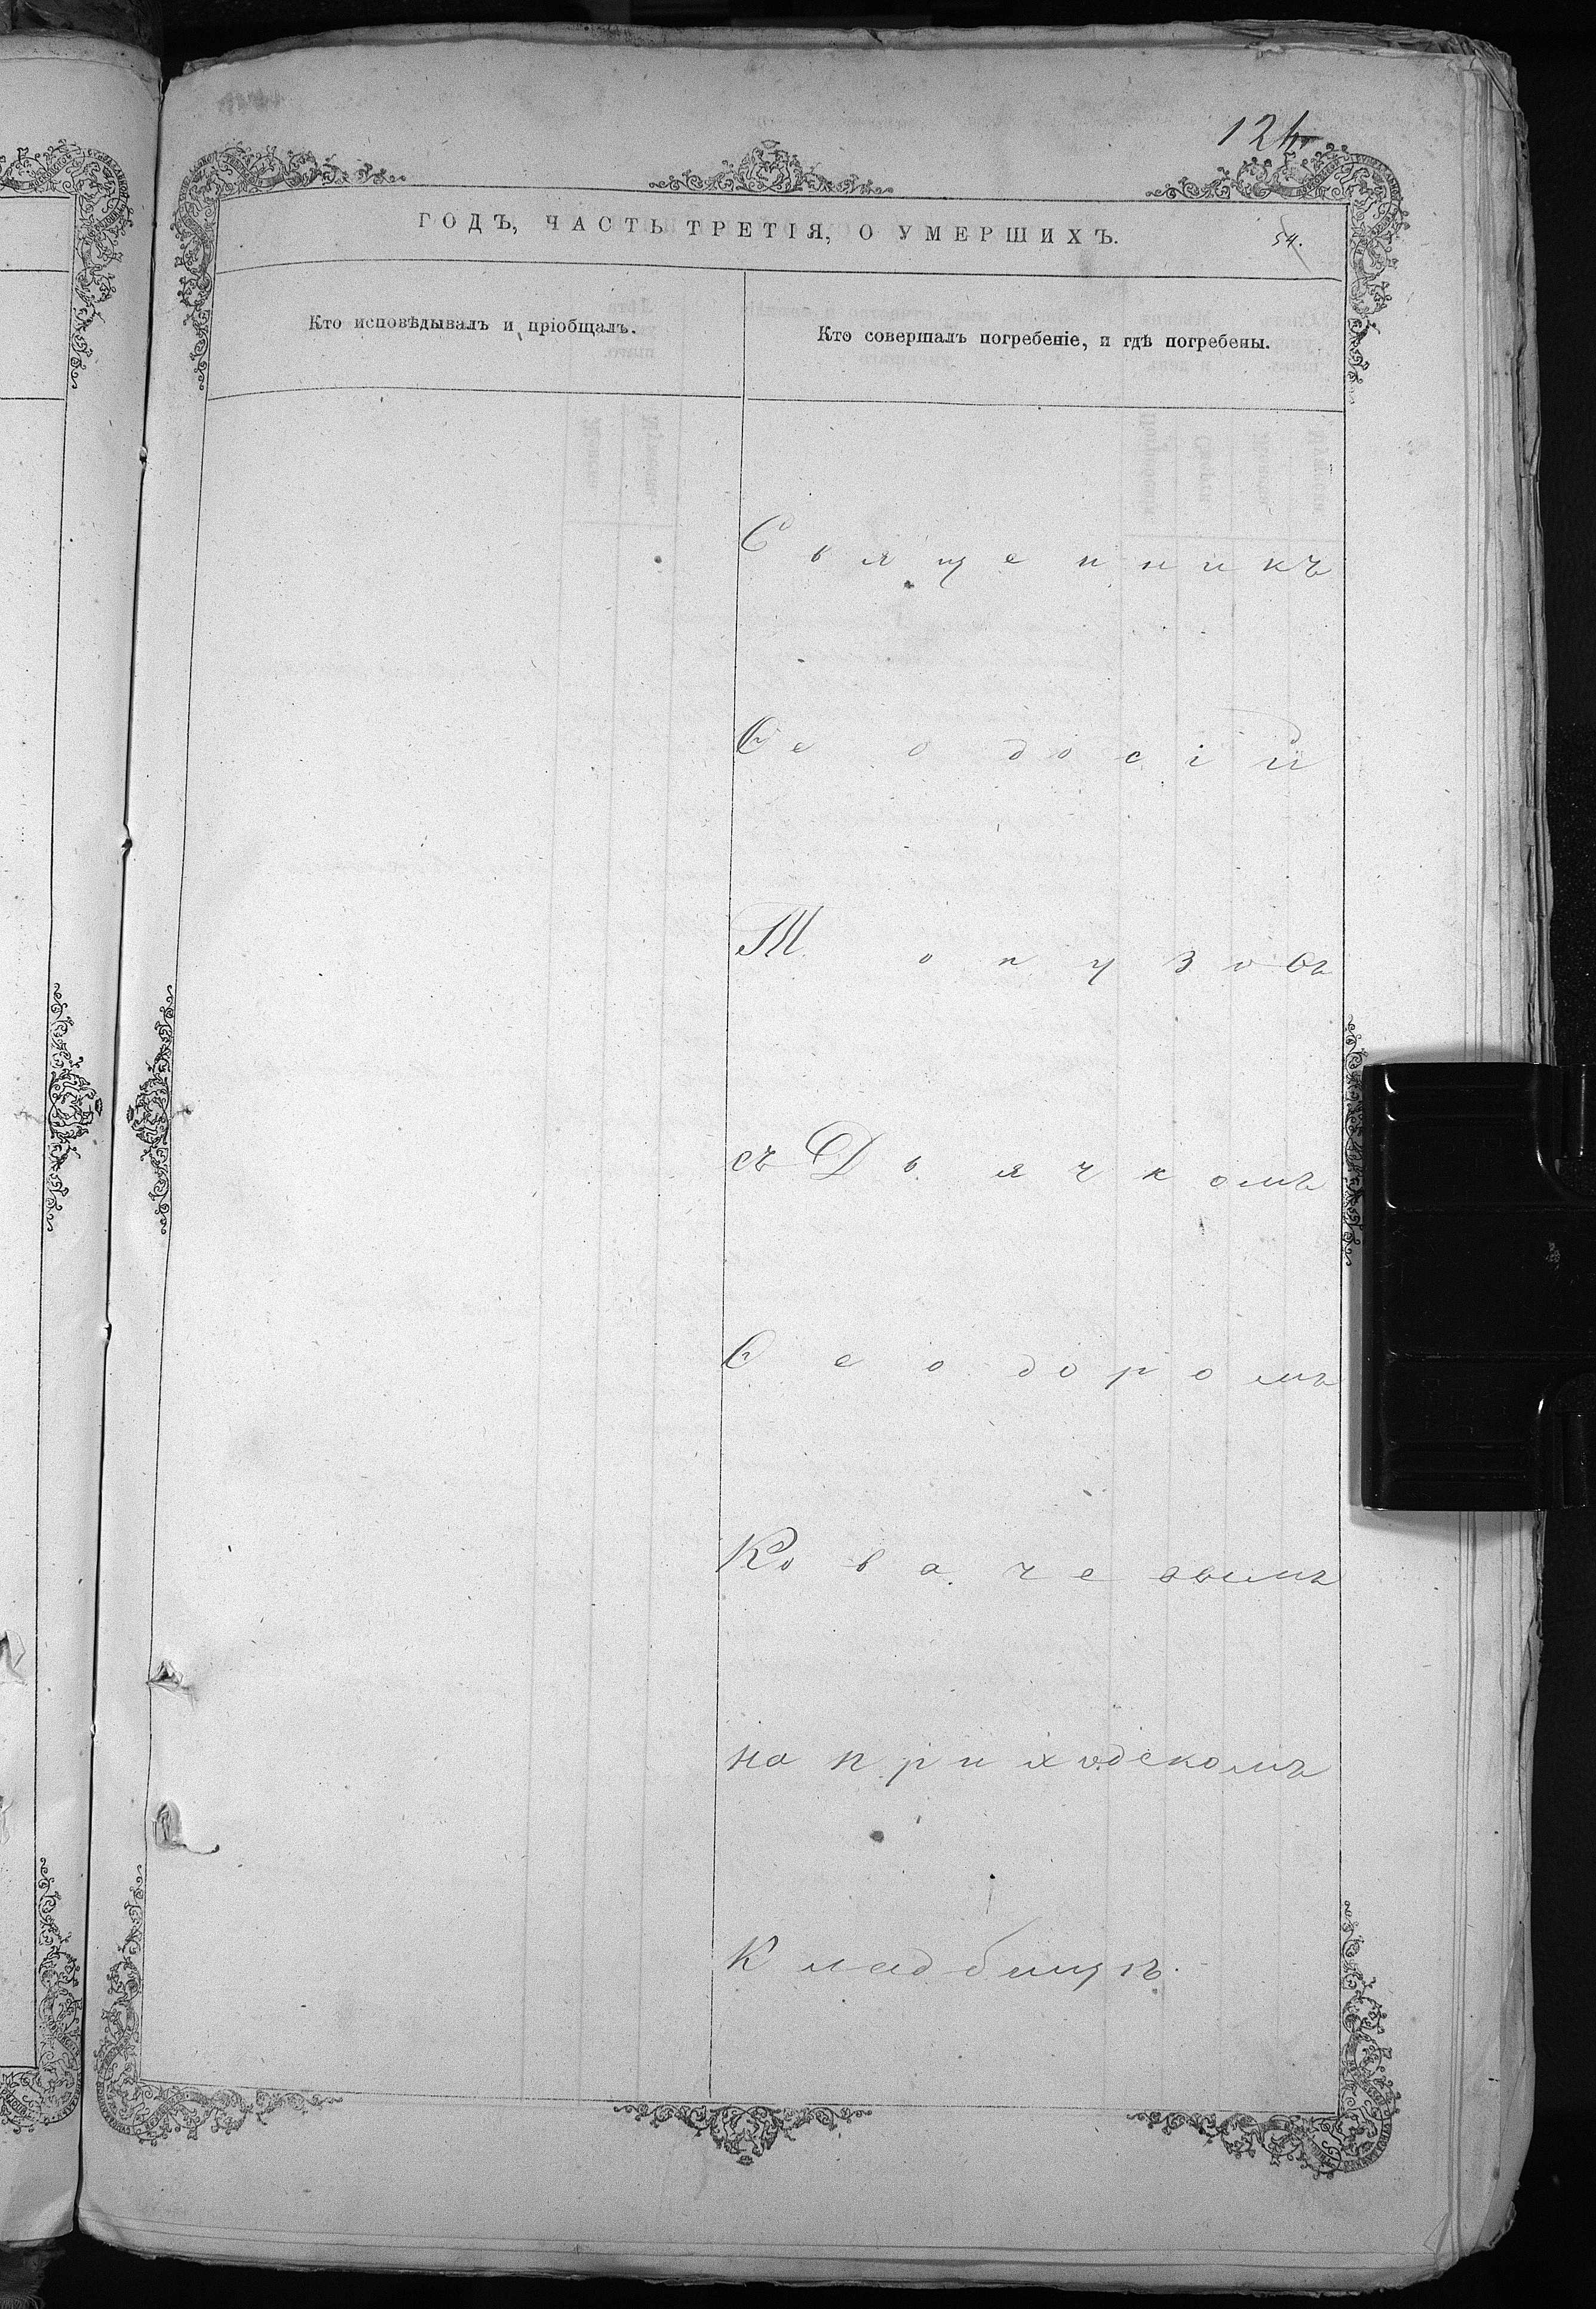 124
ГОДЪ, ЧАСТЬ ТРЕТІЯ, О УМЕРШИХЪ.
54.
Кто исповѣдывалъ и пріобщалъ.
Кто совершалъ погребеніе, и гдѣ погребены.
Священникъ
Ѳеодосій
Топузовъ
съ Дьячкомъ
Ѳеодоромъ
Ковачевымъ
на приходскомъ
Кладбищѣ.